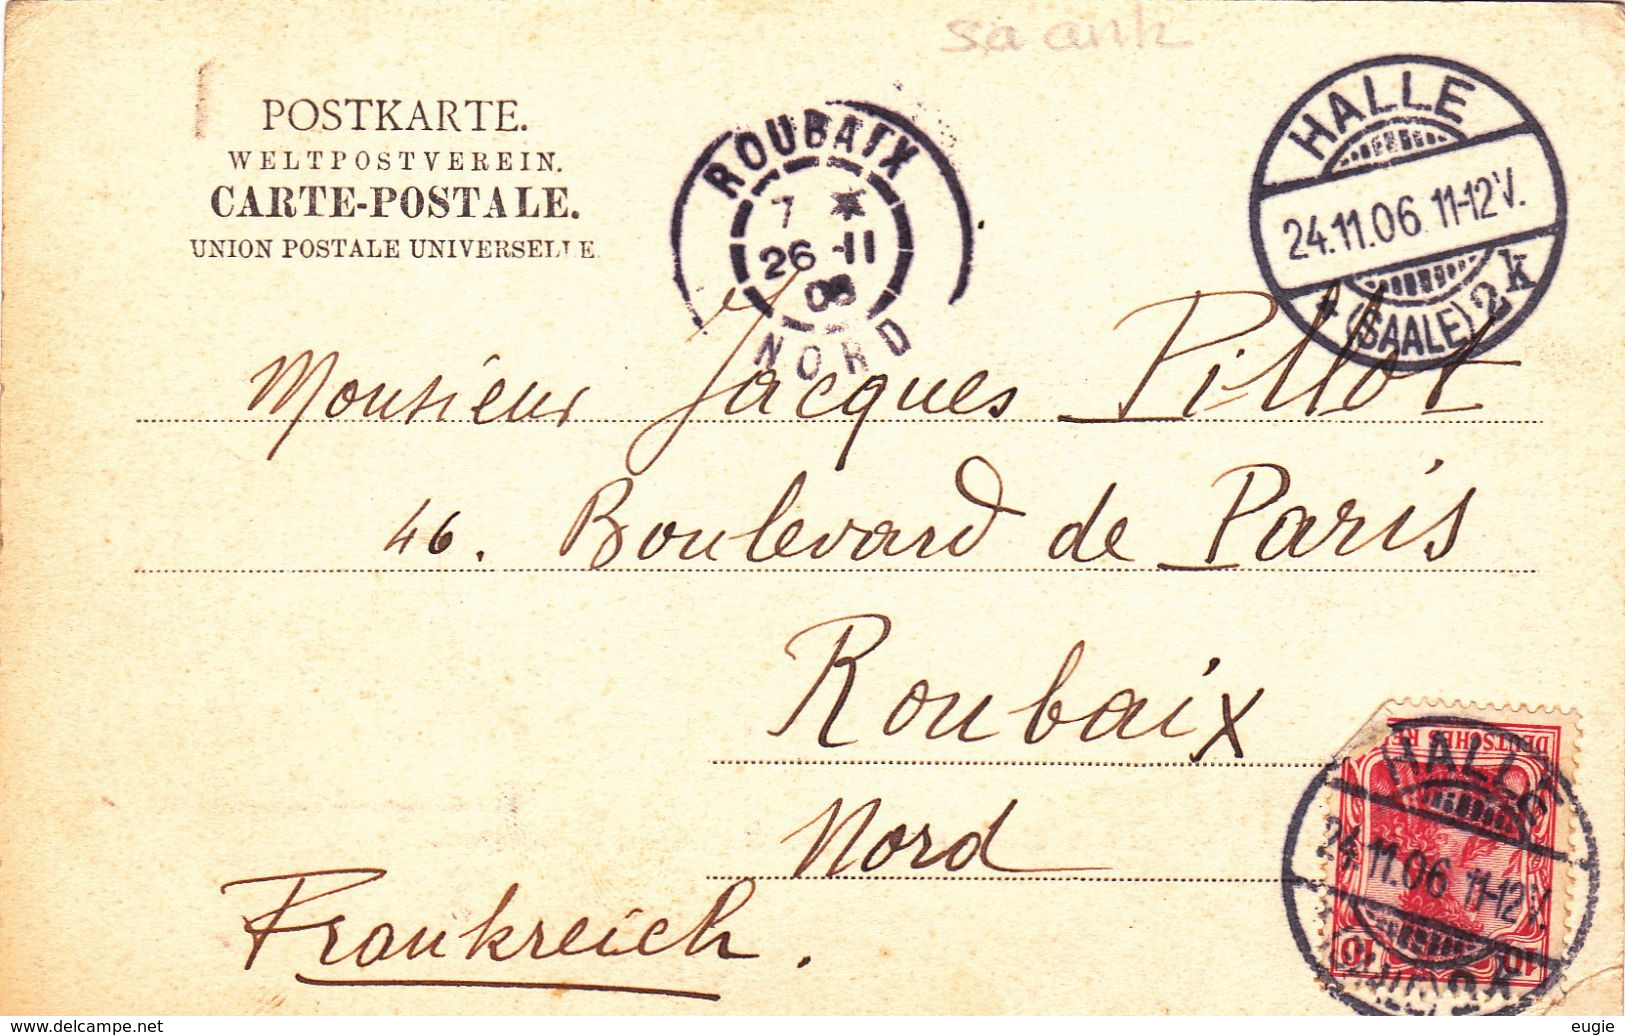 saank
POSTKARTE.
WELTPOSTVEREIN.
CARTE-POSTALE.
UNION POSTALE UNIVERSELLE
ROUBAIX
7 *
26 -11
06
NORD
HALLE
24.11.06 11-12V.
* (SAALE) 2k
Monsieur Jacques Pillot
46. Boulevard de Paris
Roubaix
Nord
Frankreich.
DEUTSCHES REI
10 10
HALLE
24.11.06 11-12V.
www.delcampe.net
eugie